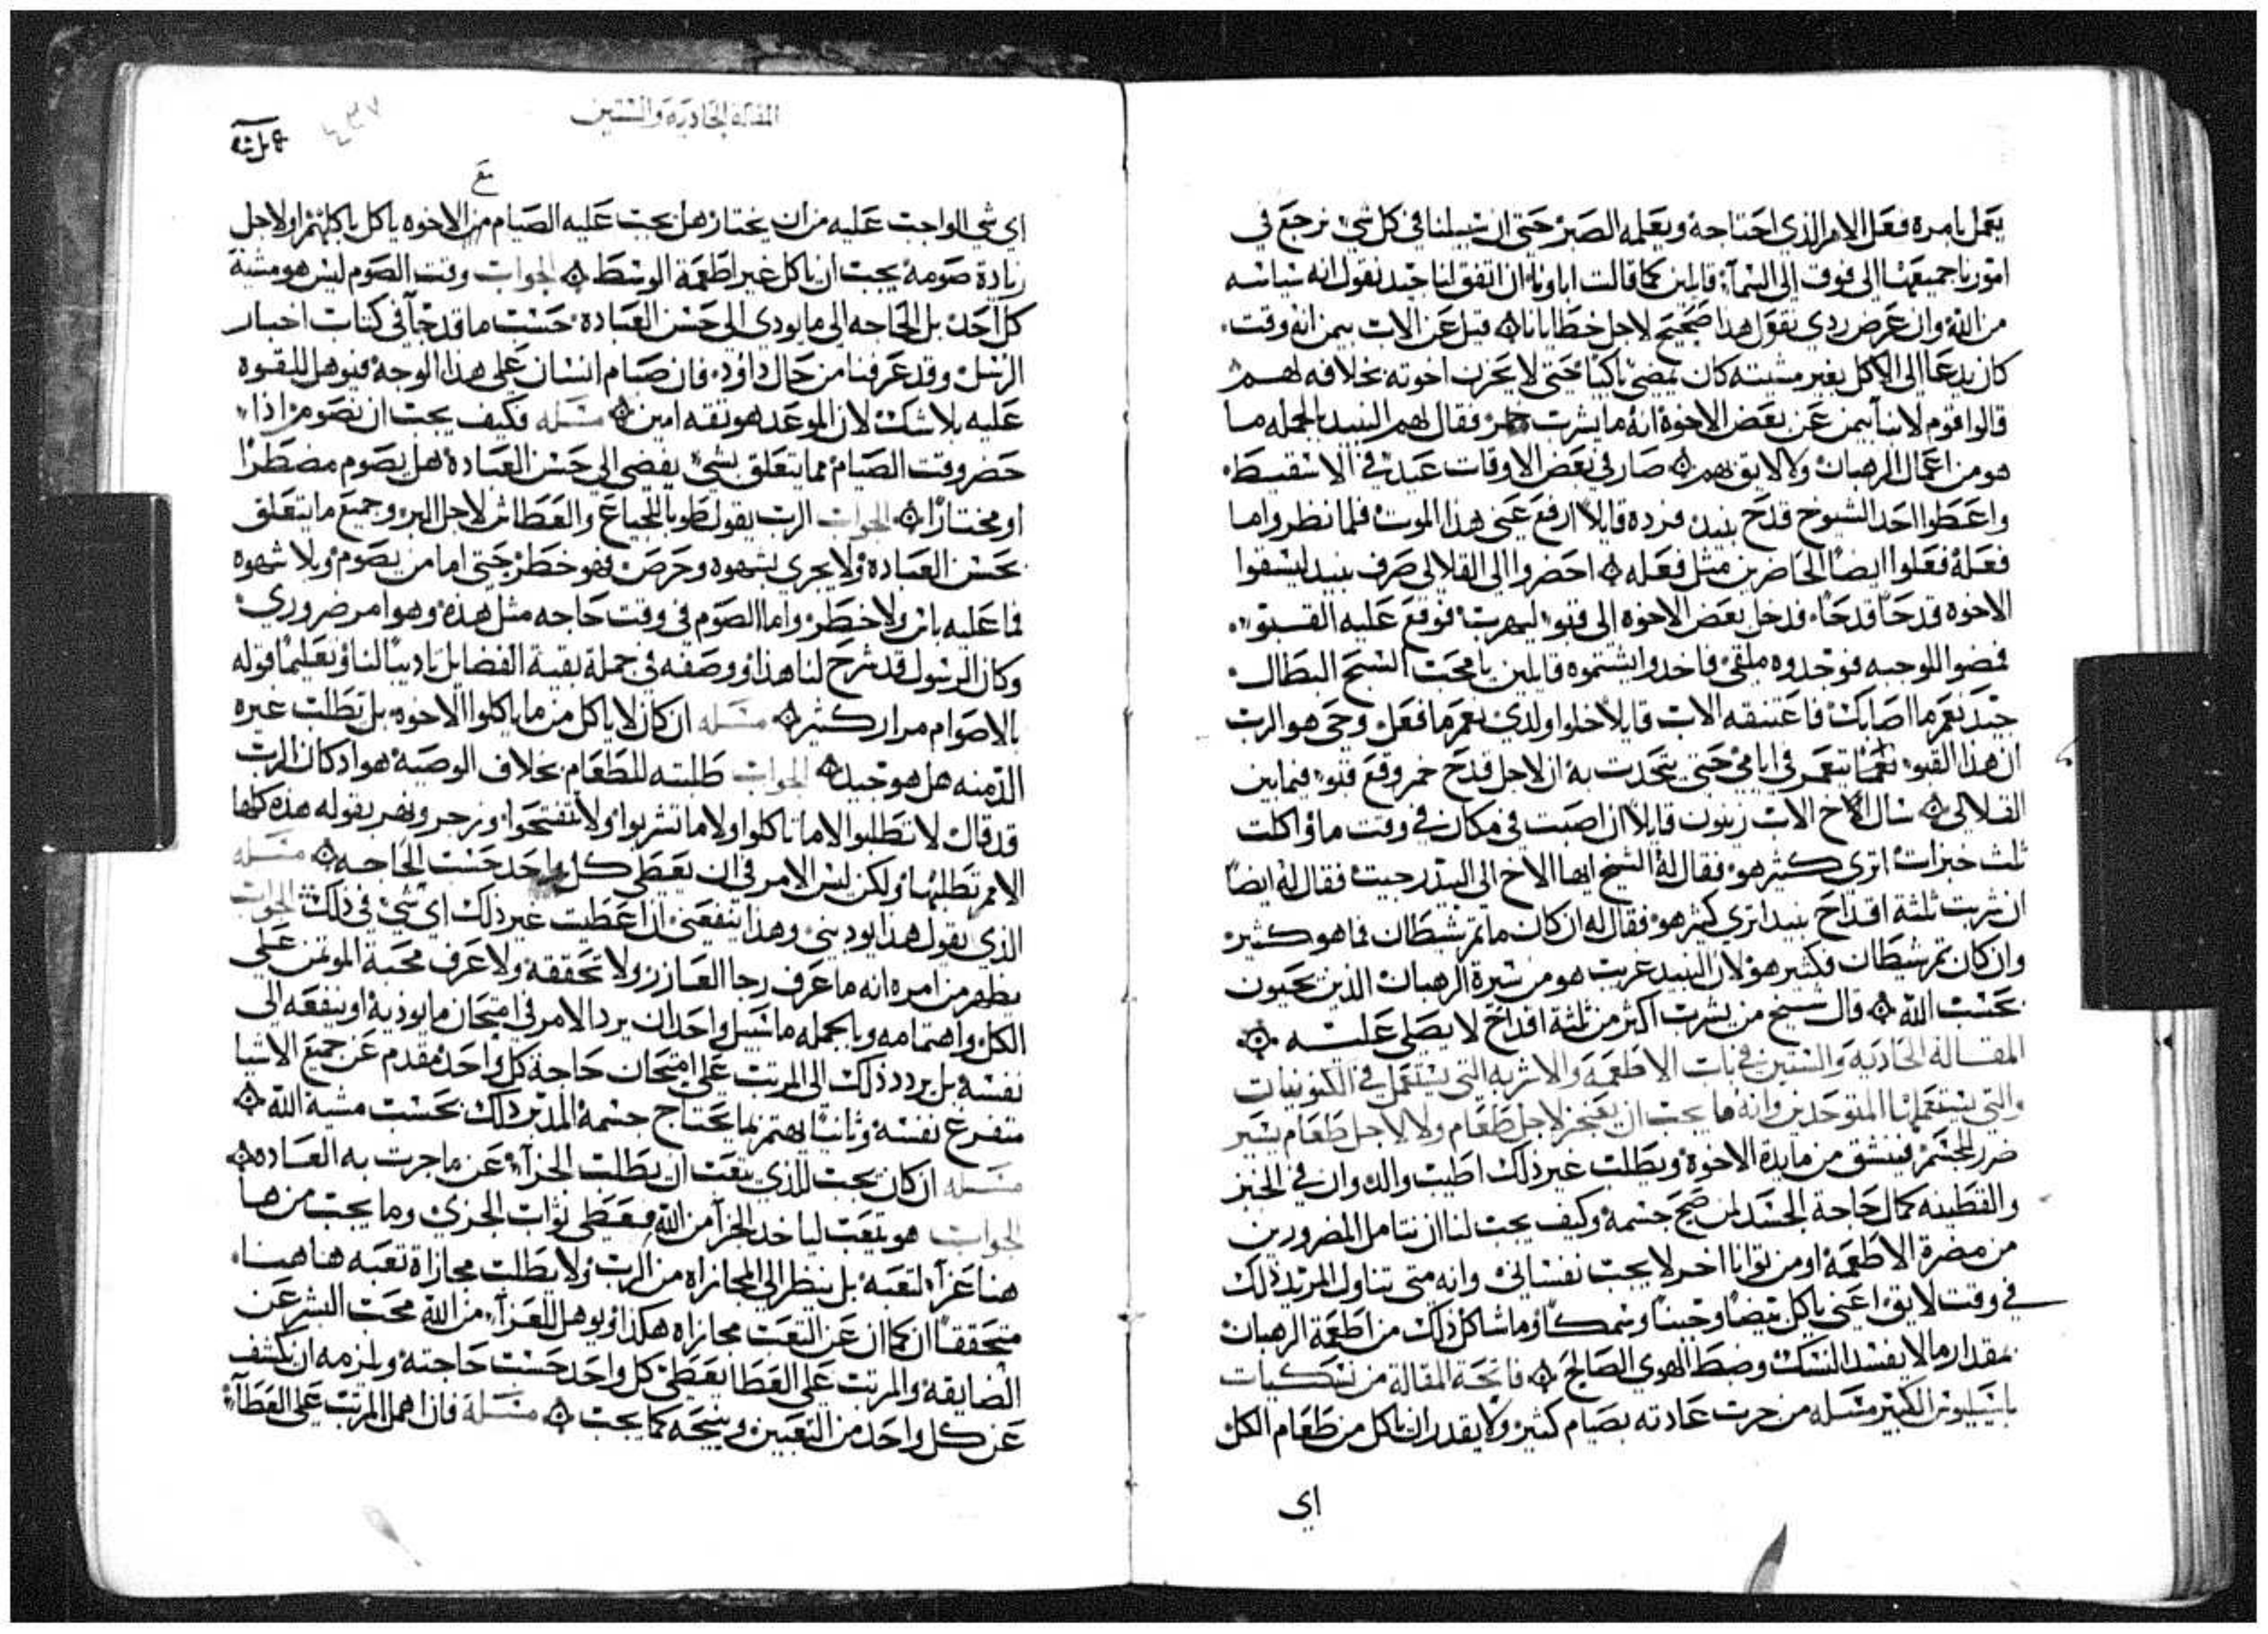 يعمل بامره فعل الامر الذي احتاجه ويعلمه الصبر حتي ان سبيلنا في كل شي نرجع في
امورنا جميعها الي فوق الي السماء قايلين كما قالت اباونا ان اتفق لنا جيد نقول انه سياسه
من الله وان عرض ردي نقول هذا صحيح لاجل خطايانا قيل عن الاب بيمن انه وقت
كان يدعا الي الاكل بغير مشيته كان يمضي باكيا حتي لا يحزن اخوته بخلافه لهم
قالوا قوم لانبا بيمن عن بعض الاخوة انه ما يشرب خمر فقال لهم النبيد بالجمله ما
هو من اعمال الرهبان ولا لايق بهم صار في بعض الاوقات عيد في الاسقيط
واعطوا احد الشيوخ قدح نبيد فرده قايلا ارفع عني هذا الموت فلما نظروا ما
فعله فعلوا ايضا الحاضرين مثل فعله احضروا الي القلالي صرف نبيد ليسقوا
الاخوه قدحا قدحا فدخل بعض الاخوه الي قبو ليهرب فوقع عليه القبو
فمضوا للوجبه فوجدوه ملقي فاخدوا يشتموه قايلين يا محب السبح البطال
جيد نعم ما اصابك فاعتنقه الاب قايلا خلوا ولدي نعم ما فعل وحي هو الرب
ان هذا القبو ما يتعمر في ايامي حتي يتحدت به ان لاجل قدح خمر وقع قبو فيما بين
القلالي سال الاخ الاب زينون قايلا ان اصبت في مكان في وقت ما واكلت
ثلث خبزات اتري كثير هو فقال له الشيخ ايها الاخ الي البيدر جيت فقال له ايضا
ان شربت ثلثة اقداح نبيد اتري كثير هو فقال له ان كان ما تم شيطان فما هو كثير
وان كان تم شيطان فكثير هو لان النبيد غريب هو من سيرة الرهبان الذين يحيون
بحسب الله قال شيخ من يشرب اكثر من ثلثة اقداح لا يصلي عليه
المقالة الحادية والستين في باب الاطعمة والاشربه التي يستعمل في الكنوبيات
والتي يستعملها المتوحدين وانه ما يجب ان يعنجز لاجل طعام ولا لاجل طعام يسير
ضرر للجسم فننشق من مايدة الاخوة ويطلب غير ذلك اطيب والد وان في الخبز
والقطينه كمال حاجة الجسد لمن صح جسمه وكيف يجب لنا ان نتامل المضرورين
من مضرة الاطعمة او من نوايا اخر لا يجب نفساني وانه متي تناول المرتد ذلك
في وقت لايق اعني ياكل بيضا وجبنا وسمكا وما شاكل ذلك من اطعمة الرهبان
بمقدار ما لا يفسد النسك وضبط الهوي الصالح فاتحة المقالة من نسكيات
باسيليوس الكبير مسله من جرت عادته بصيام كثير ولا يقدر ان ياكل من طعام الكل
اي
المقالة الحادية والستين
٤٣٧
اي شي الواجب عليه من ان يختار هل يجب عليه الصيام من الاخوه ياكل باكلهم او لاجل
زيادة صومه يجب ان ياكل غير اطعمة الوسط الجواب وقت الصوم ليس هو مشية
كل احد بل الحاجه الي ما يودي الي حسن العبادة حسب ما قد جا في كتاب اخبار
الرسل وقد عرفنا من حال داود فان صام انسان علي هذا الوجه فيوهل للقوه
عليه بلا شك لان الموعد هو ثقه امين مسله فكيف يجب ان نصوم اذا
حضر وقت الصيام مما يتعلق بشي يفضي الي حسن العبادة هل يصوم مضطرا
او مختارا الجواب الرب يقول طوبا للجياع والعطاش لاجل البر وجميع ما يتعلق
بحسن العبادة ولا يجري بشهوه وحرص فهو خطر حتي اما من يصوم وبلا شهوه
فما عليه باس ولا خطر واما الصوم في وقت حاجه مثل هذه وهو امر ضروري
وكان الرسول قد شرح لنا هذا ووصفه في جملة بقية الفضايل تاديبا لنا وتعليما قوله
بالاصوام مرار كثير مسله ان كان لا ياكل من ما ياكلوا الاخوه بل يطلب غيره
الذ منه هل هو جيد الجواب طلبته للطعام بخلاف الوصية هو اد كان الرب
قد قال لا تطلبوا لا ما تاكلوا ولا ما تشربوا ولا تتفتحوا وزجر ونهر بقوله هذه كلها
الامم تطلبها ولكن ليس الامر في ان يعطي كل واحد حسب الحاجه مسله
الذي يقول هذا يوديني وهذا ينفعني اذا اعطيت غير ذلك اي شي في ذلك الجواب
يظهر من امره انه ما عرف رجا العازر ولا تحققه ولا عرف محبة الموتمن علي
الكل واهتمامه وبالجمله ما سبيل واحد ان يرد الامر في امتحان ما يوديه او ينفعه الي
نفسه بل يردد ذلك الي المرتب علي امتحان حاجة كل واحد مقدم عن جميع الاشيا
متفرغ نفسه وثانيا يهتم بما يحتاج جسمه المدبر ذلك بحسب مشية الله
مسله ان كان يجب للذي يتعب ان يطلب الجزاء عن ما جرت به العاده
الجواب هو يتعب لياخد الجزا من الله فيعطي ثواب الجزي وما يجب من ها
هنا عزاء لتعبه بل ينظر الي المجازاه من الرب ولا يطلب مجازاة تعبه هاهنا
متحققا ان كما ان عن التعب مجازاه هكذا ويوهل للعزاء من الله محب البشر عن
الضايقه والمرتب علي العطا يعطي كل واحد حسب حاجته ويلزمه ان يكشف
عن كل واحد من التعبين وينيحه كما يجب مسلة فان اهمل المرتب علي العطاء